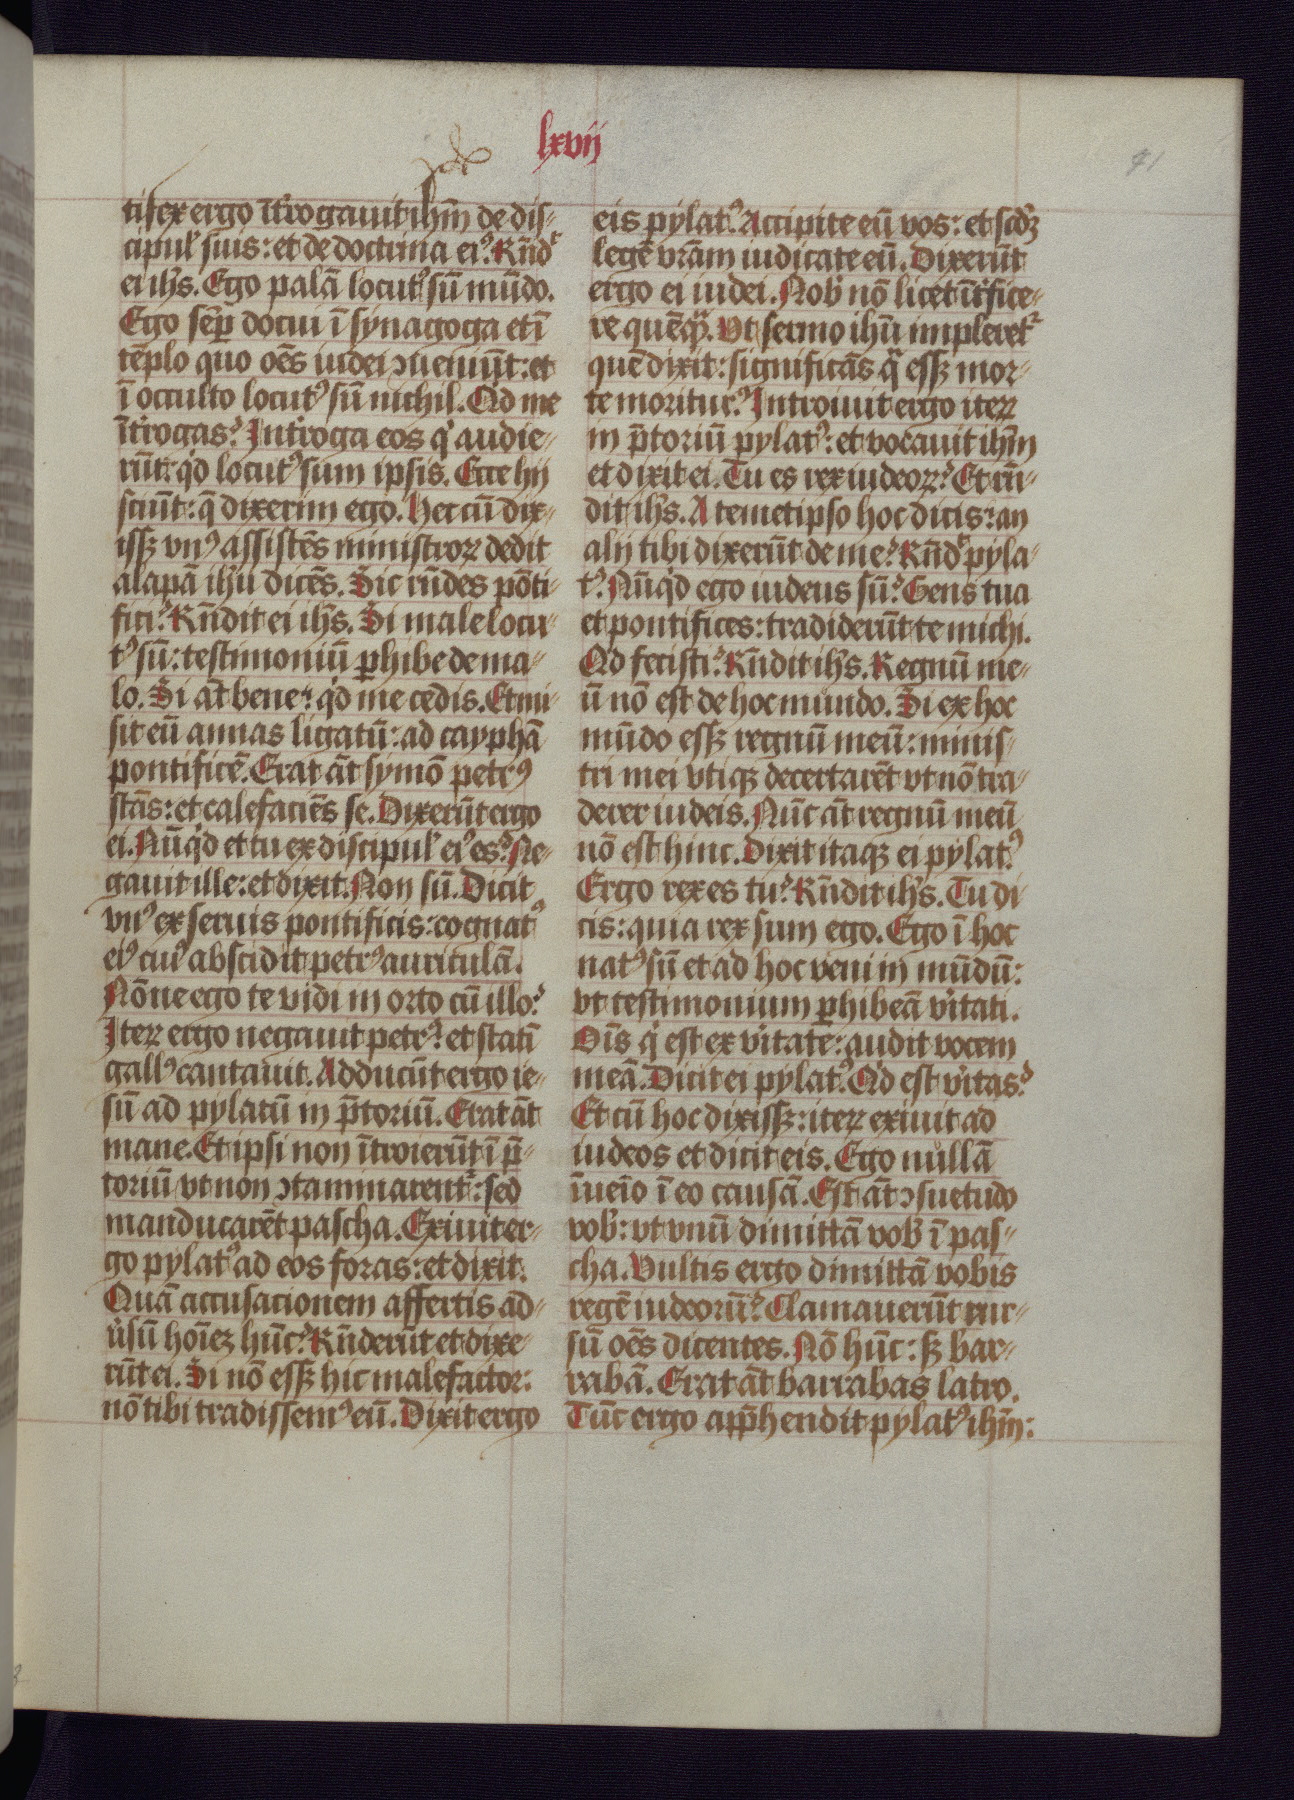 lxvij
71
tifex ergo ῑt'rogauit ihm̄ de dis⸗
cipul' suis: et de doctrina ei⁹. Rn̄d'
ei ihs̄. Ego palā locut⁹ sū mūdo.
Ego sēp docui ī synagoga et ī
tēplo quo oēs iudei ↄueniūt: et
ī occulto locut⁹ sū nichil. Qd me
īt'rogas? Int'roga eos q' audie⸗
rūt: qd locut⁹ sum ipsis. Ecce hij
sciūt: q̄ dixerim ego. Hec cū dix⸗
issꝫ vn⁹ assistēs ministroꝝ dedit
alapā ihū dicēs. Sic rn̄des pōti⸗
fici? Rn̄dit ei ihs̄. Si male locu⸗
t⁹ sū: testimoniū ꝑhibe de ma⸗
lo. Si at̄ bene: qd me cedis. Et mi⸗
sit eū annas ligatū: ad cayphā
pontificē. Erat at̄ symō petr⁹
stās: et calefaciēs se. Dixerūt ergo
ei. Nūqd et tu ex discipul' ei⁹ es? Ne⸗
gauit ille: et dixit. Non sū. Dicit
vn⁹ ex seruis pontificis: cognat⁹
ei⁹ cui⁹ abscidit petr⁹ auriculā.
Nōne ego te vidi in orto cū illo?
Iteꝝ ergo negauit petr⁹: et statī
gall⁹ cantauit. Adducūt ergo ie⸗
sū ad pylatū in p̄toriū. Erat at̄
mane. Et ipsi non ītroierūt ī p̄⸗
toriū vt non ↄtaminarent': sed
manducarēt pascha. Exiuit er⸗
go pylat⁹ ad eos foras: et dixit.
Quā accusacionem affertis ad⸗
u'sū hoīeꝫ hūc? Rn̄derūt et dixe⸗
rūt ei. Si nō essꝫ hic malefactor:
nō tibi tradissem⁹ eū. Dixit ergo
eis pylat⁹. Accipite eū vos: et scd'ꝫ
legē vrām iudicate eū. Dixerūt
ergo ei iudei. Nob' nō licet īt'fice⸗
re quēqꝫ. Vt sermo ihū impleret'
quē dixit: significās q̄ essꝫ mor⸗
te moritur⁹. Introiuit ergo iteꝝ
in p̄toriū pylat⁹: et vocauit ihm̄
et dixit ei. Tu es rex iudeoꝝ? Et rn̄⸗
dit ihs̄. A temetipso hoc dicis: an
alij tibi dixerūt de me? Rn̄d' pyla⸗
t⁹. Nūqd ego iudeus sū? Gens tua
et pontifices: tradiderūt te michi.
Qd fecisti? Rn̄dit ihs̄. Regnū me⸗
ū nō est de hoc mundo. Si ex hoc
mūdo essꝫ regnū meū: minis⸗
tri mei vtiqꝫ decertarēt vt nō tra⸗
derer iudeis. Nūc at̄ regnū meū
nō est hinc. Dixit itaqꝫ ei pylat⁹.
Ergo rex es tu? Rn̄dit ihs̄. Tu di
cis: quia rex sum ego. Ego ī hoc
nat⁹ sū et ad hoc veni in mūdū:
vt testimonium ꝑhibeā v'itati.
Oīs q' est ex v'itate: audit vocem
meā. Dicit ei pylat⁹. Qd est v'itas?
Et cū hoc dixissꝫ: iteꝝ exiuit ad
iudeos et dicit eis. Ego nullā
īueīo ī eo causā. Est at̄ ↄsuetudo
vob': vt vnū dimittā vob' ī pas⸗
cha. Vultis ergo dimittā vobis
regē iudeorū? Clamauerūt rur⸗
sū oēs dicentes. Nō hūc: sꝫ bar⸗
rabā. Erat at̄ barrabas latro.
Tūc ergo app̄hendit pylat⁹ ihm̄: